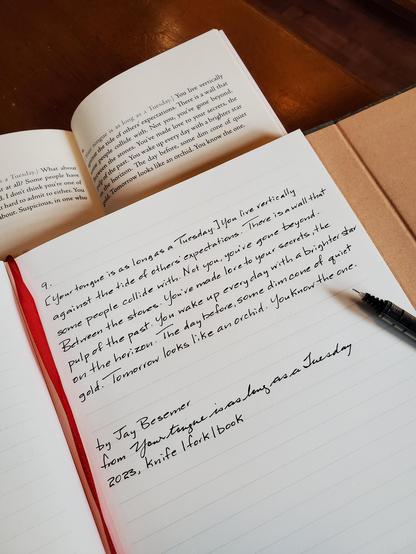 s a Tuesday.] What about
t at all? Some people have
I don't think you're one of
hard to admit to either. You
about. Suspicious, in one who
tongue is as long as a Tuesday.] You live vertically
against the tide of others' expectations. There is a wall that
people collide with. Not you, you've gone beyond.
between the stones. You've made love to your secrets, the
of the past. You wake up every day with a brighter star
the horizon. The day before, some dim cone of quiet
gold. Tomorrow looks like an orchid. You know the one.
9.
[Your tongue is as long as a Tuesday.] You live vertically
against the tide of others' expectations. There is a wall that
some people collide with. Not you, you've gone beyond.
Between the stones. You've made love to your secrets, the
pulp of the past. You wake up every day with a brighter star
on the horizon. The day before, some dim cone of quiet
gold. Tomorrow looks like an orchid. You know the one.
by Jay Besemer
from Your tongue is as long as a Tuesday
2023, knife|fork|book